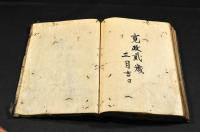 寛政貳歳
三月吉日